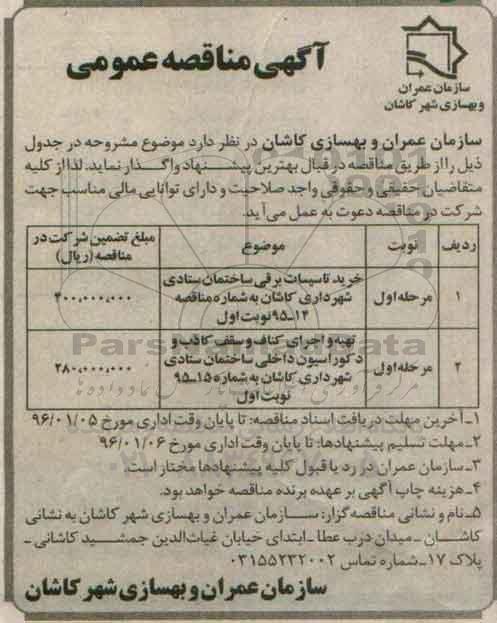 آگهی مناقصه عمومی
سازمان عمران
و بهسازی شهر کاشان
سازمان عمران و بهسازی کاشان در نظر دارد موضوع مشروحه در جدول
ذیل را از طریق مناقصه در قبال بهترین پیشنهاد واگذار نماید. لذا از کلیه
متقاضیان حقیقی و حقوقی واجد صلاحیت و دارای توانایی مالی مناسب جهت
شرکت در مناقصه دعوت به عمل می‌آید.
ردیف نوبت موضوع مبلغ تضمین شرکت در
مناقصه (ریال)
۱ مرحله اول خرید تاسیسات برقی ساختمان ستادی
شهرداری کاشان به شماره مناقصه
۱۴-۹۵ نوبت اول
۴۰۰،۰۰۰،۰۰۰
۲ مرحله اول تهیه و اجرای کناف و سقف کاذب و
دکوراسیون داخلی ساختمان ستادی
شهرداری کاشان به شماره ۱۵-۹۵
نوبت اول
۲۸۰،۰۰۰،۰۰۰
۱- آخرین مهلت دریافت اسناد مناقصه: تا پایان وقت اداری مورخ ۹۶/۰۱/۰۵
۲- مهلت تسلیم پیشنهادها: تا پایان وقت اداری مورخ ۹۶/۰۱/۰۶
۳- سازمان عمران در رد یا قبول کلیه پیشنهادها مختار است.
۴- هزینه چاپ آگهی بر عهده برنده مناقصه خواهد بود.
۵- نام و نشانی مناقصه‌گزار: سازمان عمران و بهسازی شهر کاشان به نشانی
کاشان - میدان درب عطا - ابتدای خیابان غیاث‌الدین جمشید کاشانی -
پلاک ۱۷- شماره تماس ۰۳۱۵۵۲۳۲۰۰۲
سازمان عمران و بهسازی شهر کاشان